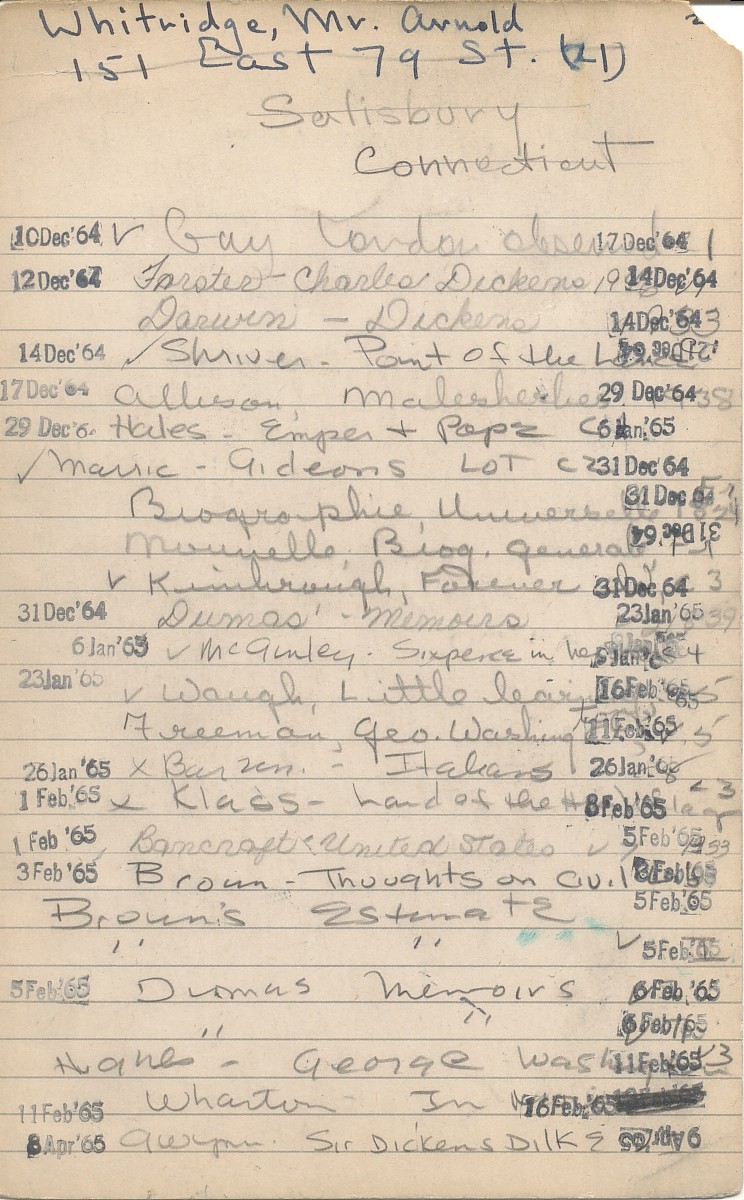 Whitridge, Mr. Arnold
151 East 79 St. (21)
Salisbury
Connecticut
10Dec'64 ✓ Gay London observed 17Dec'64 1
12Dec'64 Forster - Charles Dickens 14Dec'64
Darwin - Dickens 14Dec'64
14Dec'64 ✓ Shriver - Point of the 21Dec'64
17Dec'64 Allison, Malesherbes 29Dec'64
29Dec'6 Hales - Emper + Pope 6Jan'65
✓ Marric - Gideons LOT 31Dec'64
Biographie Universelle 31Dec'64
Biog. Generale 31Dec'64
✓ Kimbrough, Forever 31Dec'64 3
31Dec'64 Dumas' - Memoirs 23Jan'65
6Jan'65 ✓ McGinley - Sixpence in her 4
23Jan'65 ✓ Waugh, Little learn 16Feb'65 5
Freeman, Geo. Washingt 11Feb'65 5
26Jan'65 x Barzini - Italians 26Jan'65
1Feb'65 x Klaas - Land of the 8Feb'65
1Feb'65 Bancroft United States ✓ 5Feb'65
3Feb'65 Brown - Thoughts on Civil
Brown's Estimate 5Feb'65
" " ✓ 5Feb'65
5Feb'65 Dumas Memoirs 6Feb'65
" " 6Feb'65
Hughes - George Wash 11Feb'65 3
11Feb'65 Wharton - In 16Feb'65
8Apr'65 Gwynn. Sir Dickens DILKE 9Apr'65